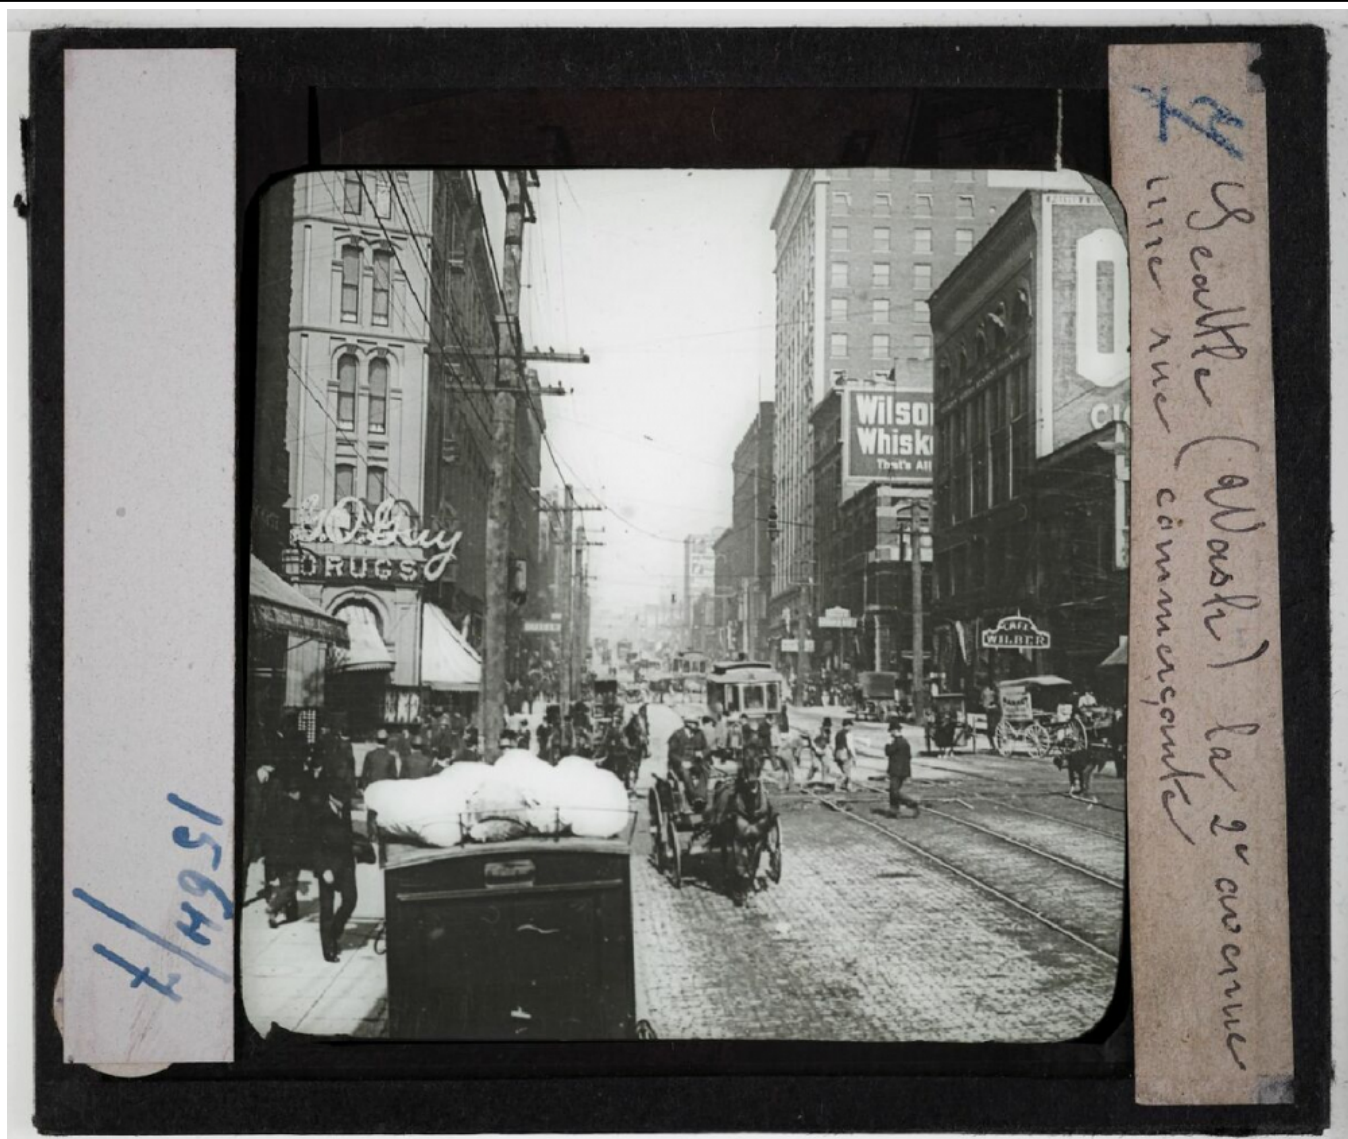 1564/7
G.O. Guy
DRUGS
Wilso
Whisk
That's All
CI
CAFE
WILBER
Seattle (Wash) la 2e avenue
une rue commerçante